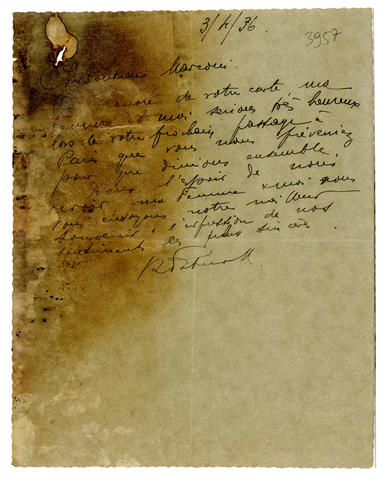 3/4/36.
3957
Marconi.
de votre carte, ma
femme et moi serions très heureux
lors de votre prochain passage à
Paris que vous nous préveniez
pour que dinions ensemble.
Dans l'espoir de vous
revoir ma femme & moi vous
vous envoyons notre meilleur
souvenir & l'expression de nos
sentiments les plus sincères.